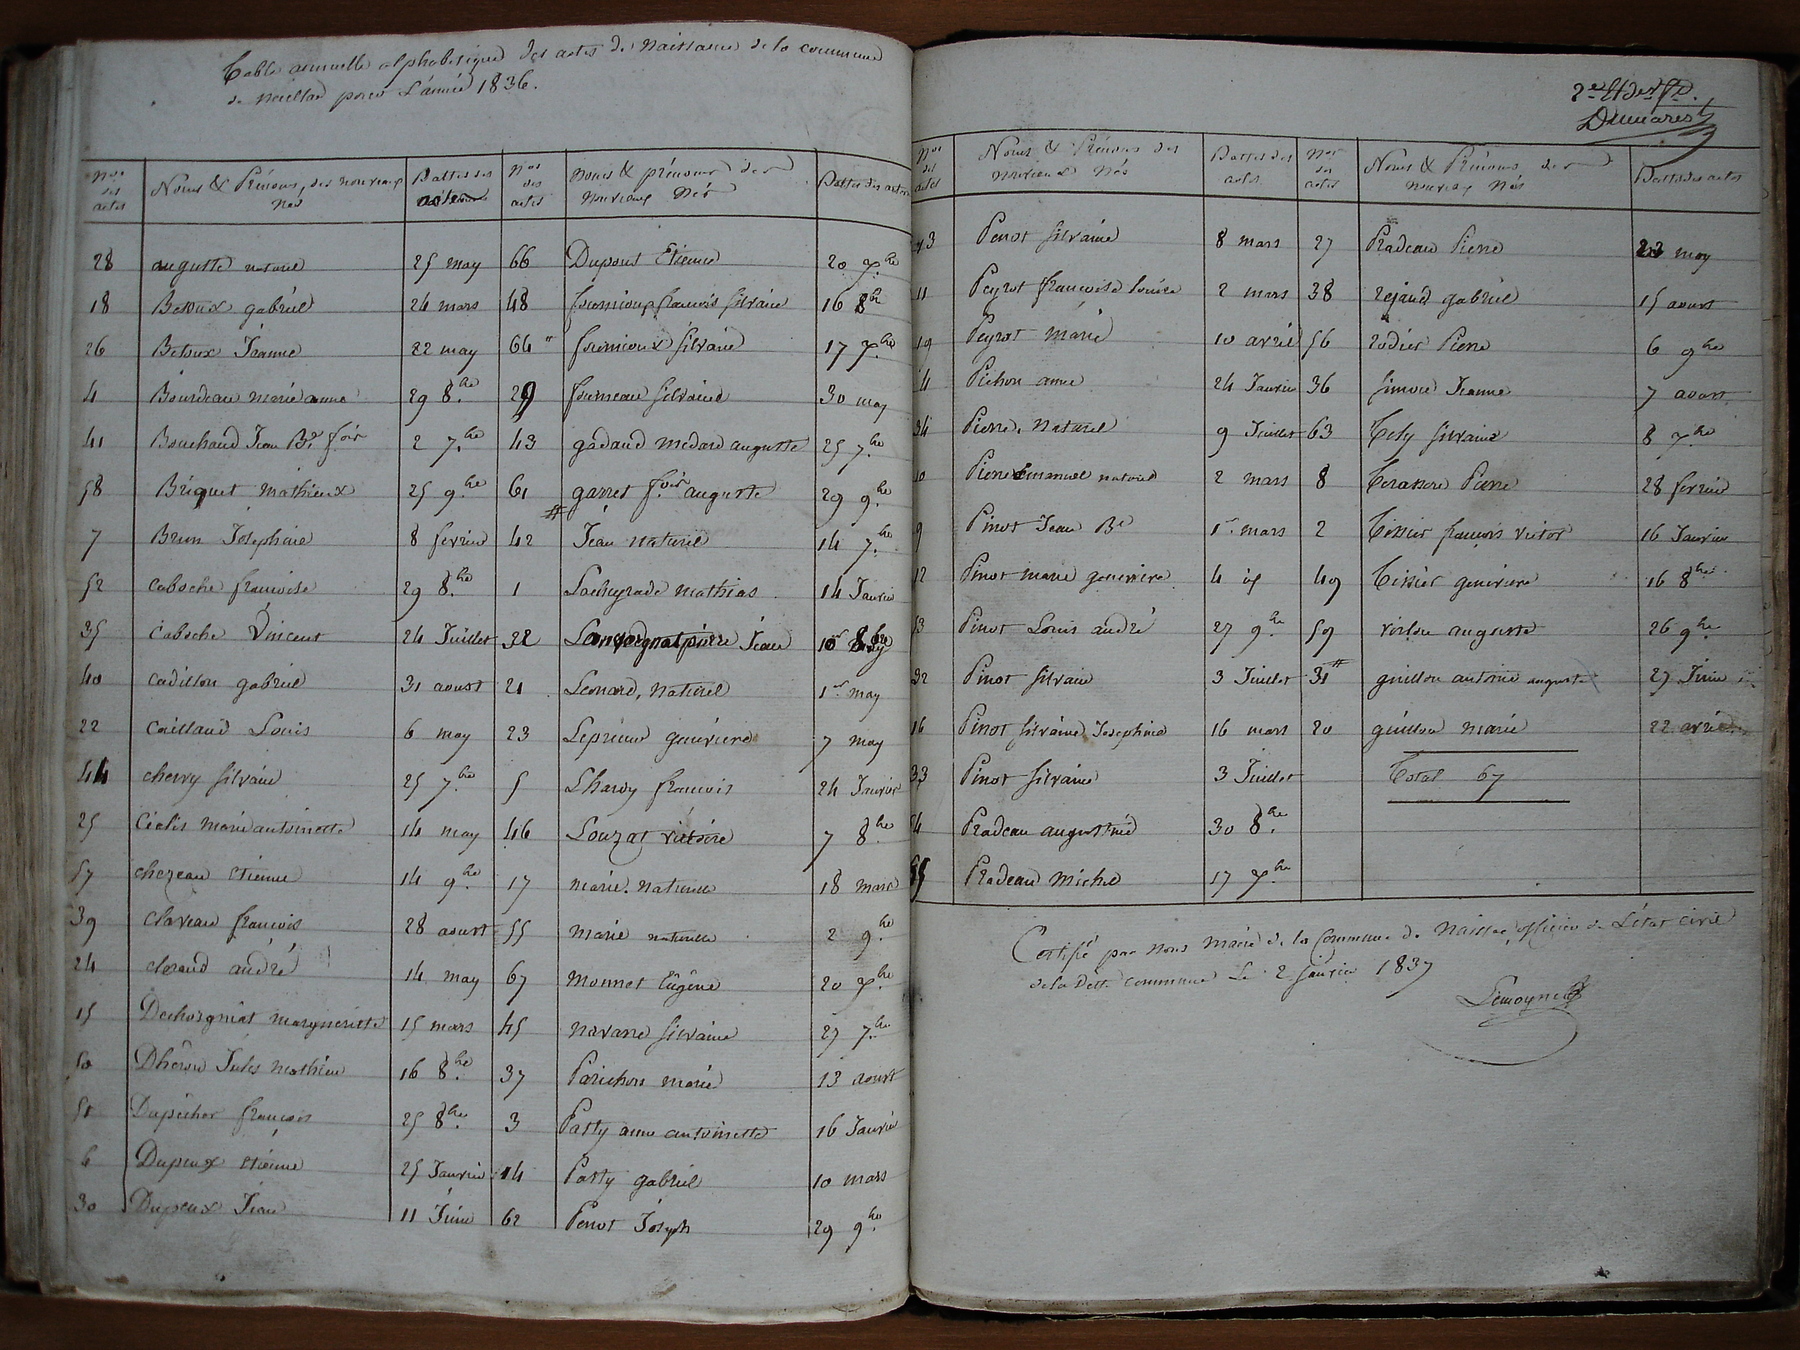 Table annuelle alphabetique des actes de Naissance de la commune
de Naillat pour L'année 1836.
Nos des actes
Noms & Prénoms des nouveaux Nés
Dattes des
Nos des actes
noms & prénoms des nouveaux Nés
Dattes des actes
28 auguste naturel 25 may 66 Dupont Etienne 20 Xbre
18 Betoux gabriel 24 mars 48 fournioux francois silvain 16 8bre
26 Betoux Jeanne 22 may 64 fournioux silvain 17 Xbre
4 Bourdeau marie anne 29 8bre 29 fourneau silvain 30 may
41 Bouchaud Jean Bte fois 2 7bre 43 gadaud medard auguste 25 7bre
58 Briquet Mathieux 25 9bre 61 garret fois auguste 29 9bre
7 Brun Josephine 8 fevrier 42 Jean naturel 14 7bre
52 caboche francoise 29 8bre 1 Lachegrade mathias 14 Janvier
35 caboche Vincent 24 Juillet 32 Jean
40 cadillon gabriel 31 aoust 21 Leonard, naturel 1er may
22 caillaud Louis 6 may 23 Leprieur genevieve 7 may
44 cherry silvain 25 7bre 5 Lhardy francois 24 Janvier
25 Cèclis marie antoinette 14 may 46 Louzat victoire 7 8bre
57 chezeau etienne 14 9bre 17 marie. naturelle 18 mars
39 claveau francois 28 aoust 55 marie naturelle 2 9bre
24 andré 14 may 67 monnet Eugène 20 Xbre
15 Dechorgniat margueritte 15 mars 45 navarre silvain 27 7bre
50 Jules Mathieu 16 8bre 37 Parichon marie 13 aoust
51 Dupêcher françois 25 8bre 3 Pasty anne antoinette 16 Janvier
6 Dupeux etienne 25 Janvier 14 Pasty gabriel 10 mars
30 Dupeux Jean 11 Juin 62 Penot Joseph 29 9bre
2e et der
Dumarest
Nos des actes
Noms & Prénoms des nouveaux Nés
Dattes des actes
Nos des actes
Noms & Prénoms des nouveaux Nés
Dattes des actes
13 Penot silvain 8 mars 27 Pradeau Pierre 23 may
11 Peyrot francoise louise 2 mars 38 rejaud gabriel 15 aoust
19 Peyrot marie 10 avril 56 rodier Pierre 6 9bre
4 Pichon anne 24 Janvier 36 simon Jeanne 7 aoust
34 Pierre, Naturel 9 Juillet 63 silvain 8 Xbre
10 Pierre Emanuel naturel 2 mars 8 Pierre 28 fevrier
9 Pinot Jean Bte 1er mars 2 Tissier françois victor 16 Janvier
12 Pinot marie genevieve 4 id 49 Tissier genevieve 16 8bre
53 Pinot Louis andré 27 9bre 59 auguste 26 9bre
32 Pinot silvain 3 Juillet 31 guillon antoine auguste 27 Juin
16 Pinot silvaine Josephine 16 mars 20 guillon marie 22 avril
33 Pinot silvain 3 Juillet Total 67
54 Pradeau augustine 30 8bre
65 Pradeau Michel 17 Xbre
Certifié par nous maire de la Commune de Naillat officier de L'état civil
de la Ditte commune Le 2 Janvier 1837
Lemoyne